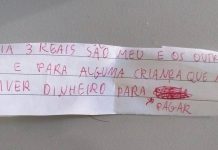 IA 3 REAIS SÃO MEU E OS OUTR
E PARA ALGUMA CRIANÇA QUE N
IVER DINHEIRO PARA
PAGAR